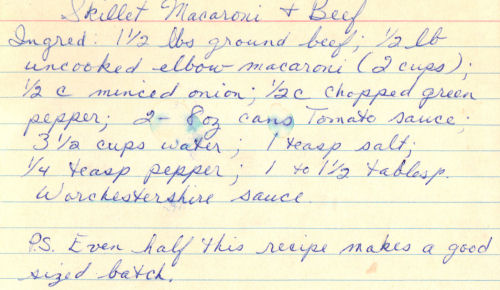 Skillet Macaroni + Beef
Ingred: 1 1/2 lbs ground beef; 1/2 lb
uncooked elbow macaroni (2 cups);
1/2 c minced onion; 1/2 c chopped green
pepper; 2- 8oz cans Tomato sauce;
3 1/2 cups water; 1 teasp salt;
1/4 teasp pepper; 1 to 1 1/2 tablesp.
Worchestershire sauce.
P.S. Even half this recipe makes a good
sized batch.